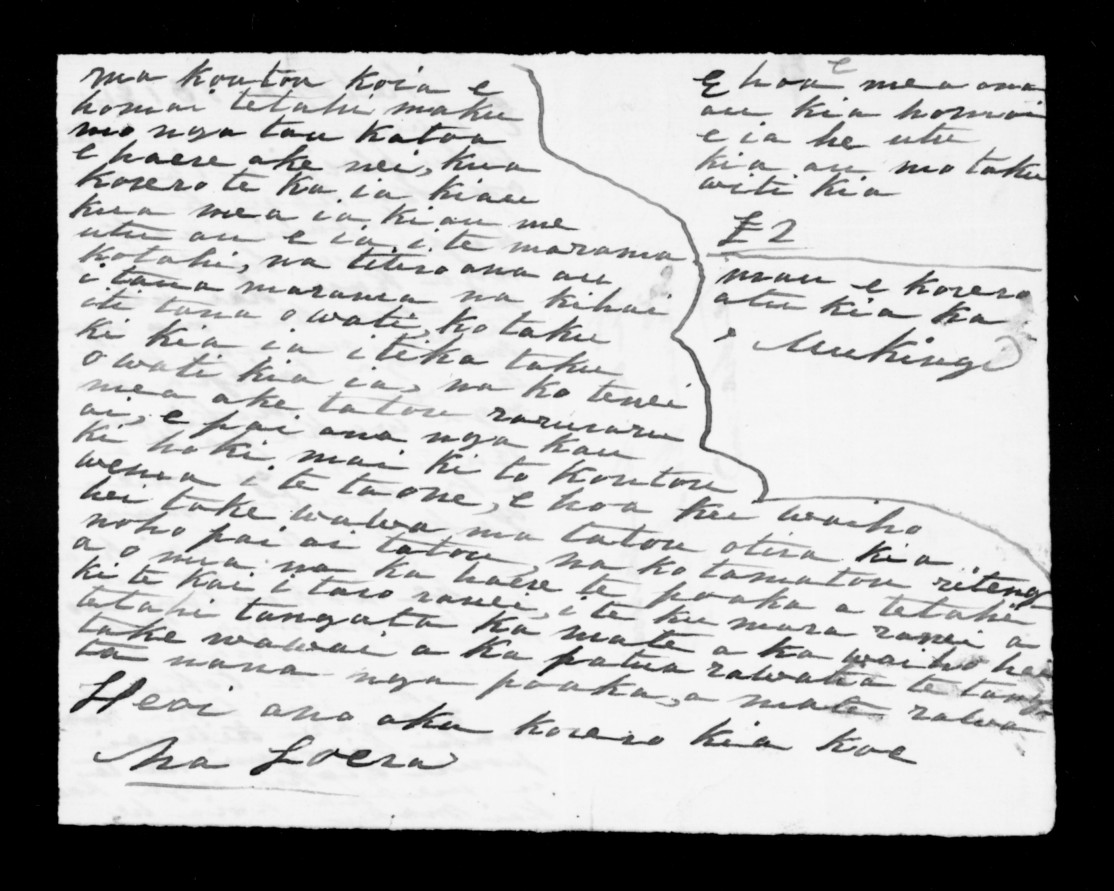 ma koutou koia e
homai tetahi maku
mo nga tau katoa
e haere ake nei, kua
korero te ka ia kiau
kua mea ia kiau me
utu au e ia i te marama
kotahi, na titiro ana au
i taua marama na kihai
ote tana owati, ko taku
ki kia ia i tika taku
owati kia ia, na ko tenei
mea ake tatou raruraru
ai, e pai ana nga kau
ki hoki mai ki to koutou
wenua i te taone, e hoa kei waiho
hei take wawa ma tatou otira kia
noho pai ai tatou, na ko tamatou ritenga
a o mua na ka haere te poaka a tetahi
ki te kai i taro ranei, i te ku mara ranei a
tetahi tangata ka mate a ka waiho hei
take wawai a ka patua rawatia te tanga
ta nana nga poaka, a mate rawa
Heoi ano aku korero kia koe
Na Loera
E hoa e mea ana
au kia homai
e ia he utu
kia au mo taku
witi kia
£2
mau e korero
atu kia ka
Mukingi